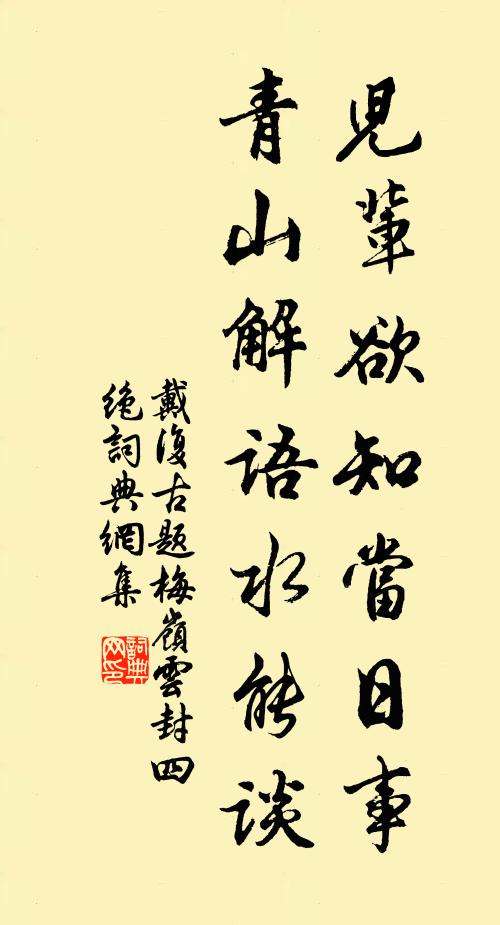 兒輩欲知當日事
青山解语水能谈
戴復古题梅嶺雲封四
絶詞典網集
詞典网印